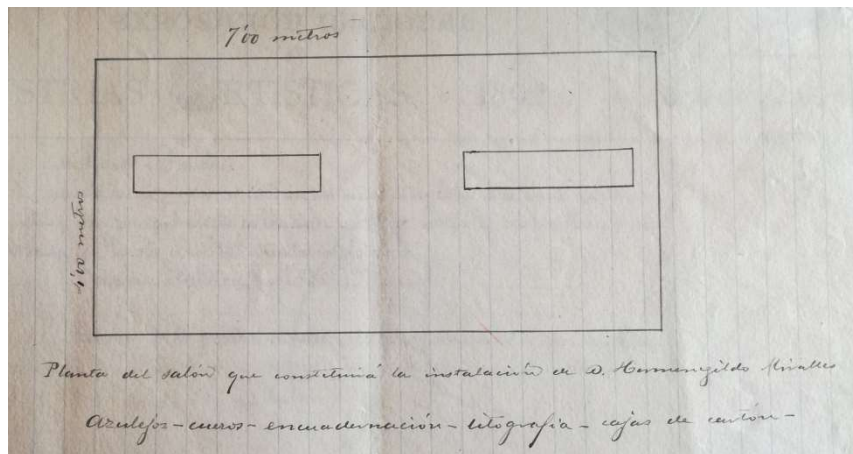 7'00 metros
4'00 metros
Planta del salón que constituirá la instalación de D. Hermenegildo Miralles
Azulejos - cueros - encuadernación - litografia - cajas de cartón -